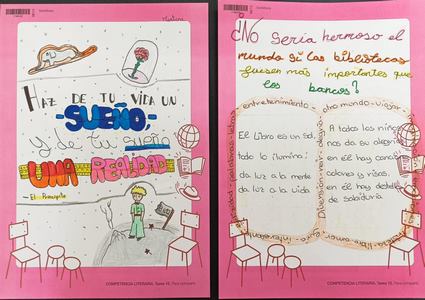 Martina
HAZ DE TU VIDA UN
SUEÑO,
y de tu sueño
UNA REALIDAD
- El Principito
COMPETENCIA LITERARIA.
¿No sería hermoso el
mundo si las bibliotecas
fuesen más importantes que
los bancos?
entretenimiento
otro mundo - viajar
palabras - letras
El Libro es un sol,
todo lo ilumina;
da luz a la mente
da luz a la vida
A todos los niños
nos da su alegría
en él hay
colores y risas,
en él hay
de sabiduría
COMPETENCIA LITERARIA.